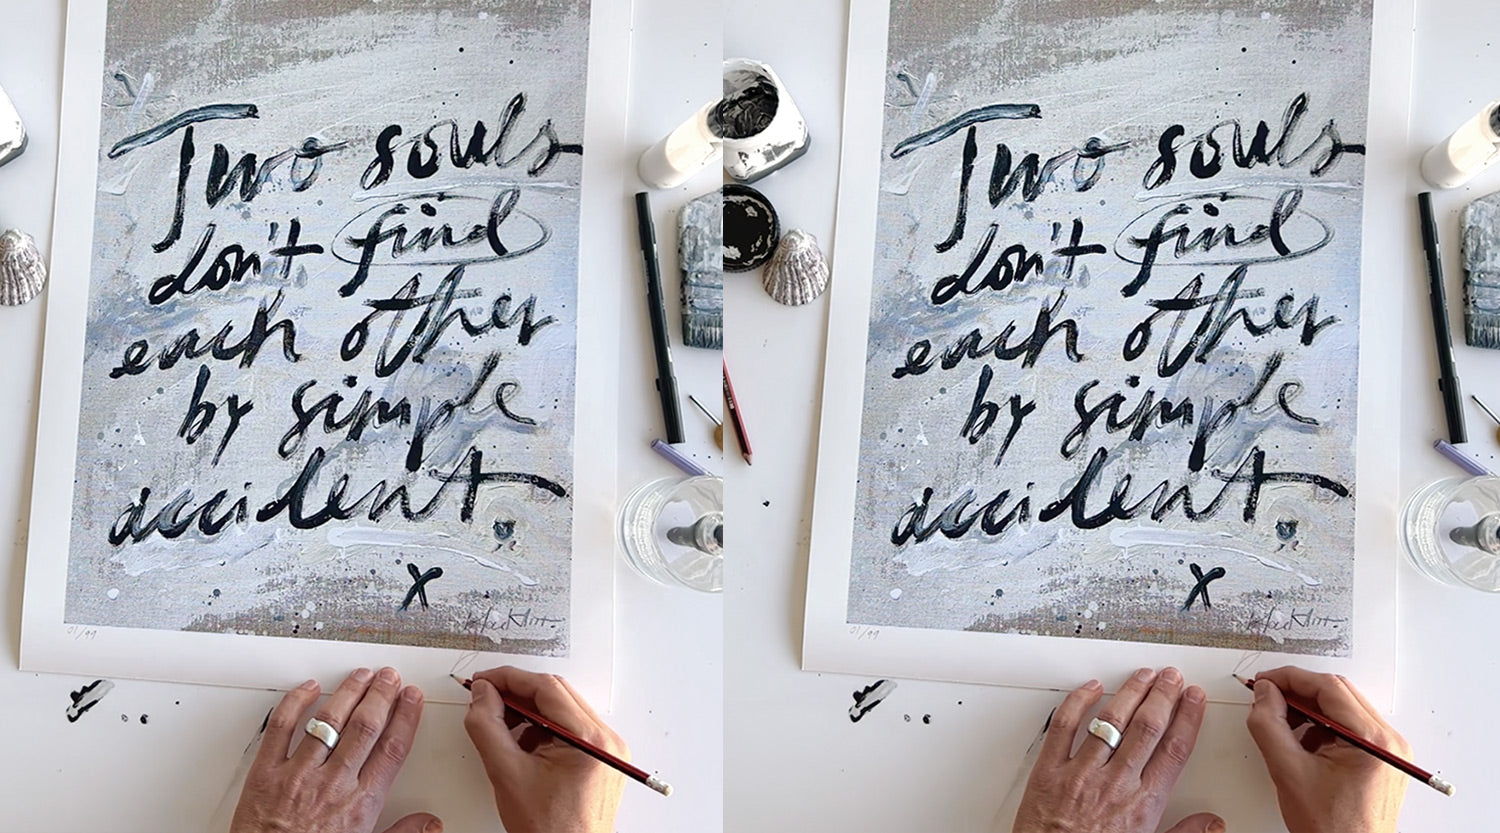 Two souls
don't find
each other
by simple
accident
x
01/99
Two souls
don't find
each other
by simple
accident
x
01/99